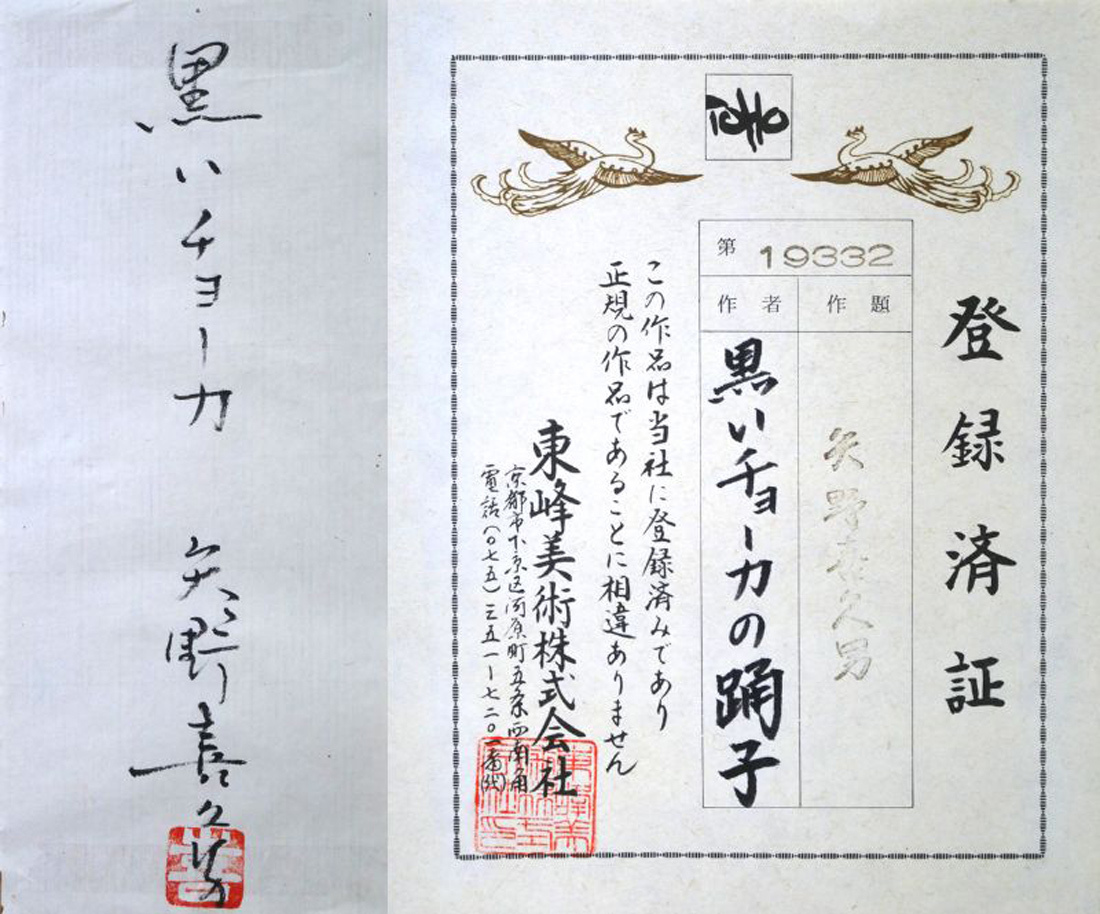 黒いチョーカ 矢野喜久男
TOHO
登録済証
第 19332
作題
作者
矢野喜久男
黒いチョーカの踊子
この作品は当社に登録済みであり
正規の作品であることに相違ありません
東峰美術株式会社
京都市下京区河原町五条西南角
電話(〇七五)三五一ー七二〇一番(代)